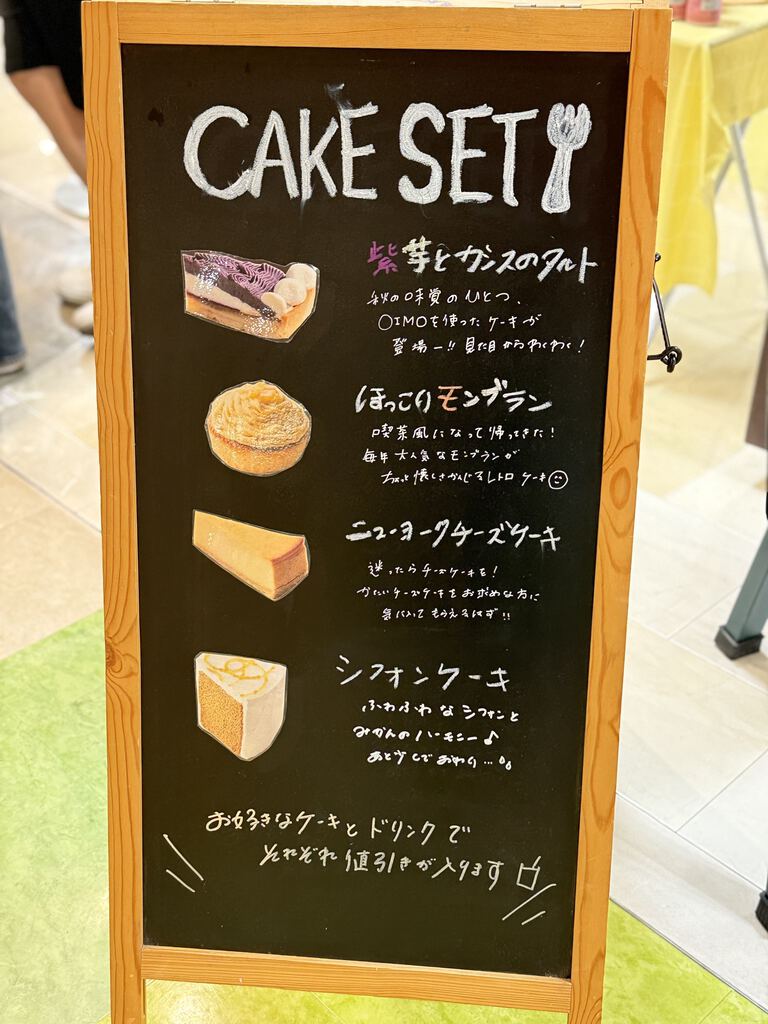 CAKE SET
紫芋とカシスのタルト
秋の味覚のひとつ、
OIMOを使ったケーキが
登場ー!! 見た目からわくわく!
ほっこりモンブラン
喫茶風になって帰ってきた!
毎年大人気なモンブランが
ちょっと懐しさかんじるレトロケーキ
ニューヨークチーズケーキ
迷ったらチーズケーキを!
かたいチーズケーキをお求めな方に
気に入ってもらえるはず!!
シフォンケーキ
ふわふわなシフォンと
みかんのハーモニー♪
あと少しでおわり...
お好きなケーキとドリンクで
それぞれ値引きが入ります